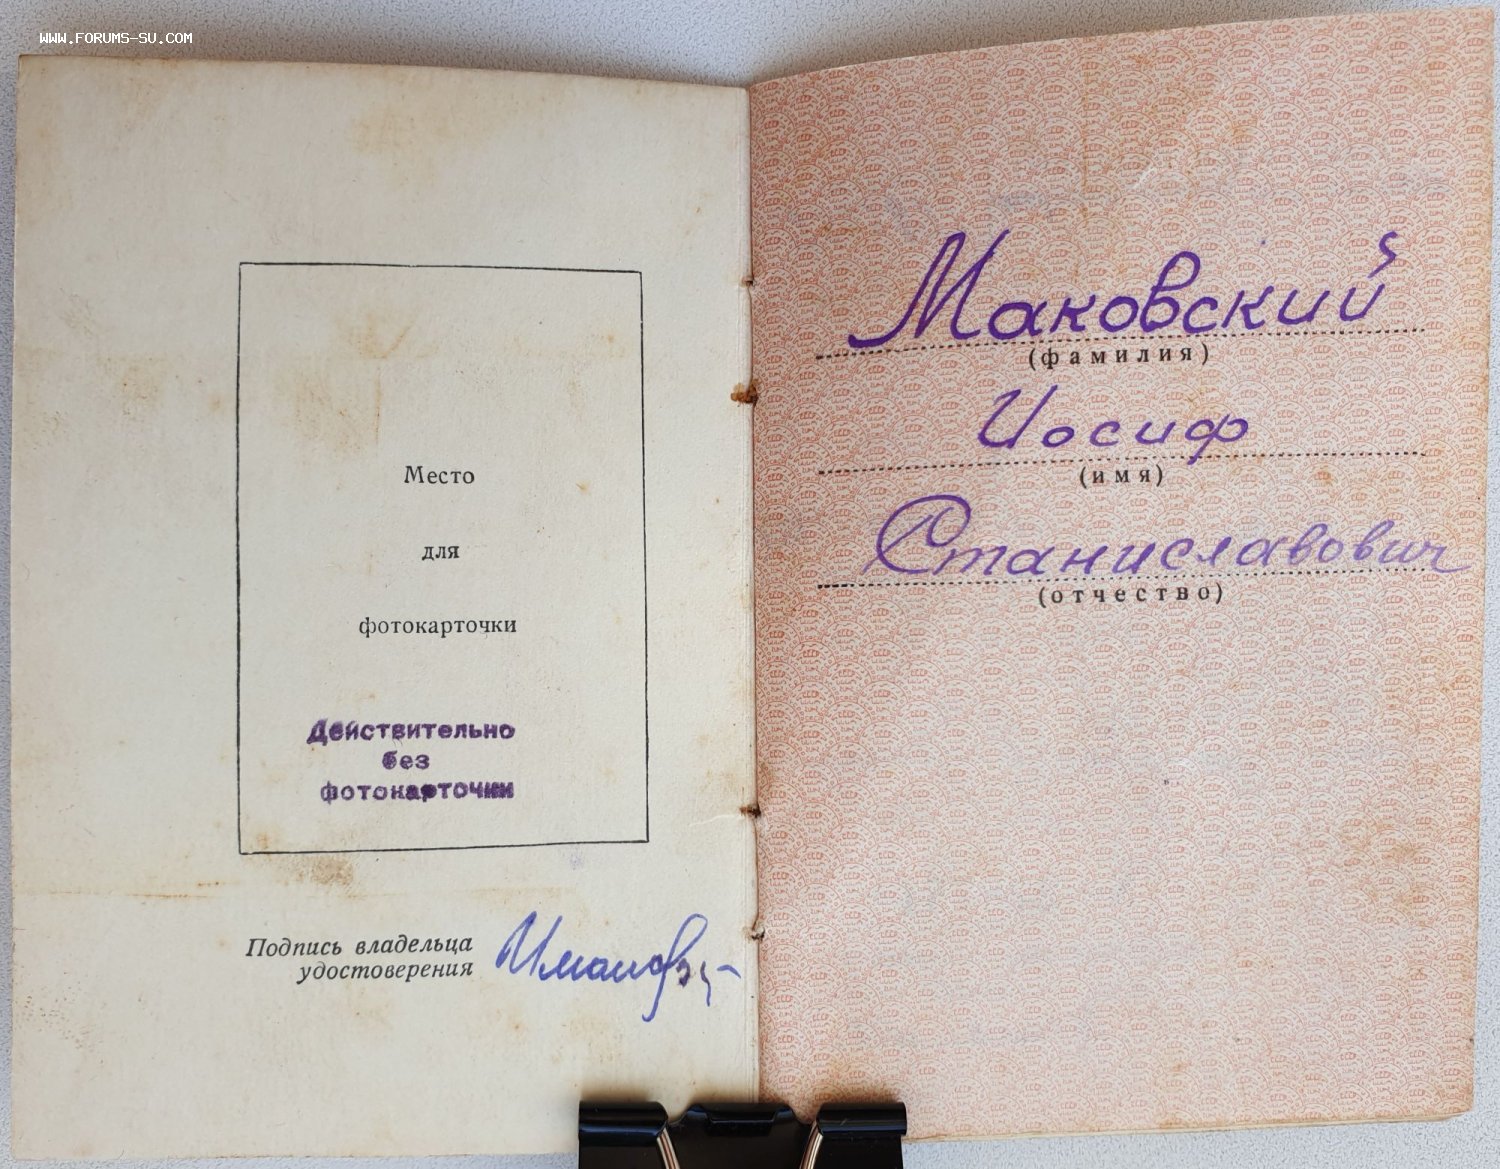 WWW.FORUMS-SU.COM
Место
для
фотокарточки
Действительно
без
фотокарточки
Подпись владельца
удостоверения
Маковский
(фамилия)
Иосиф
(имя)
Станиславович
(отчество)